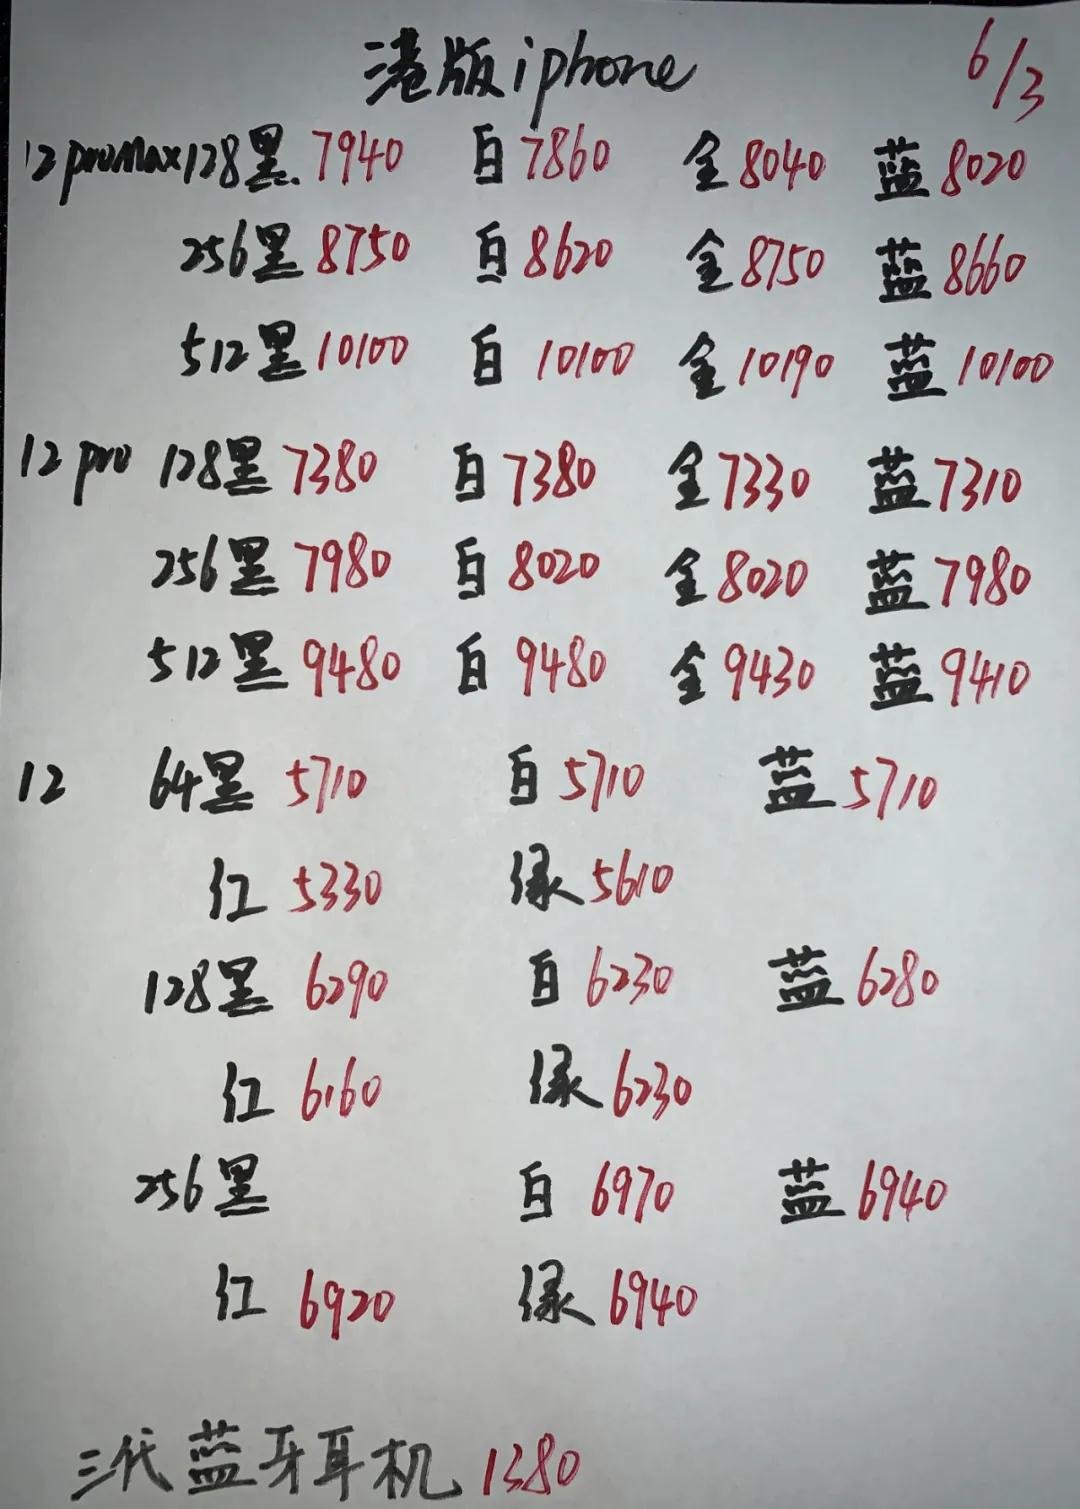 港版iphone 6/3
12promax128黑 7940 白7860 金8040 蓝8020
256黑8750 白8620 金8750 蓝8660
512黑10100 白10100 金10190 蓝10100
12pro 128黑7380 白7380 金7330 蓝7310
256黑7980 白8020 金8020 蓝7980
512黑9480 白9480 金9430 蓝9410
12 64黑5710 白5710 蓝5710
红5330 绿5610
128黑6290 白6230 蓝6280
红6160 绿6230
256黑 白6970 蓝6940
红6920 绿6940
三代蓝牙耳机1380